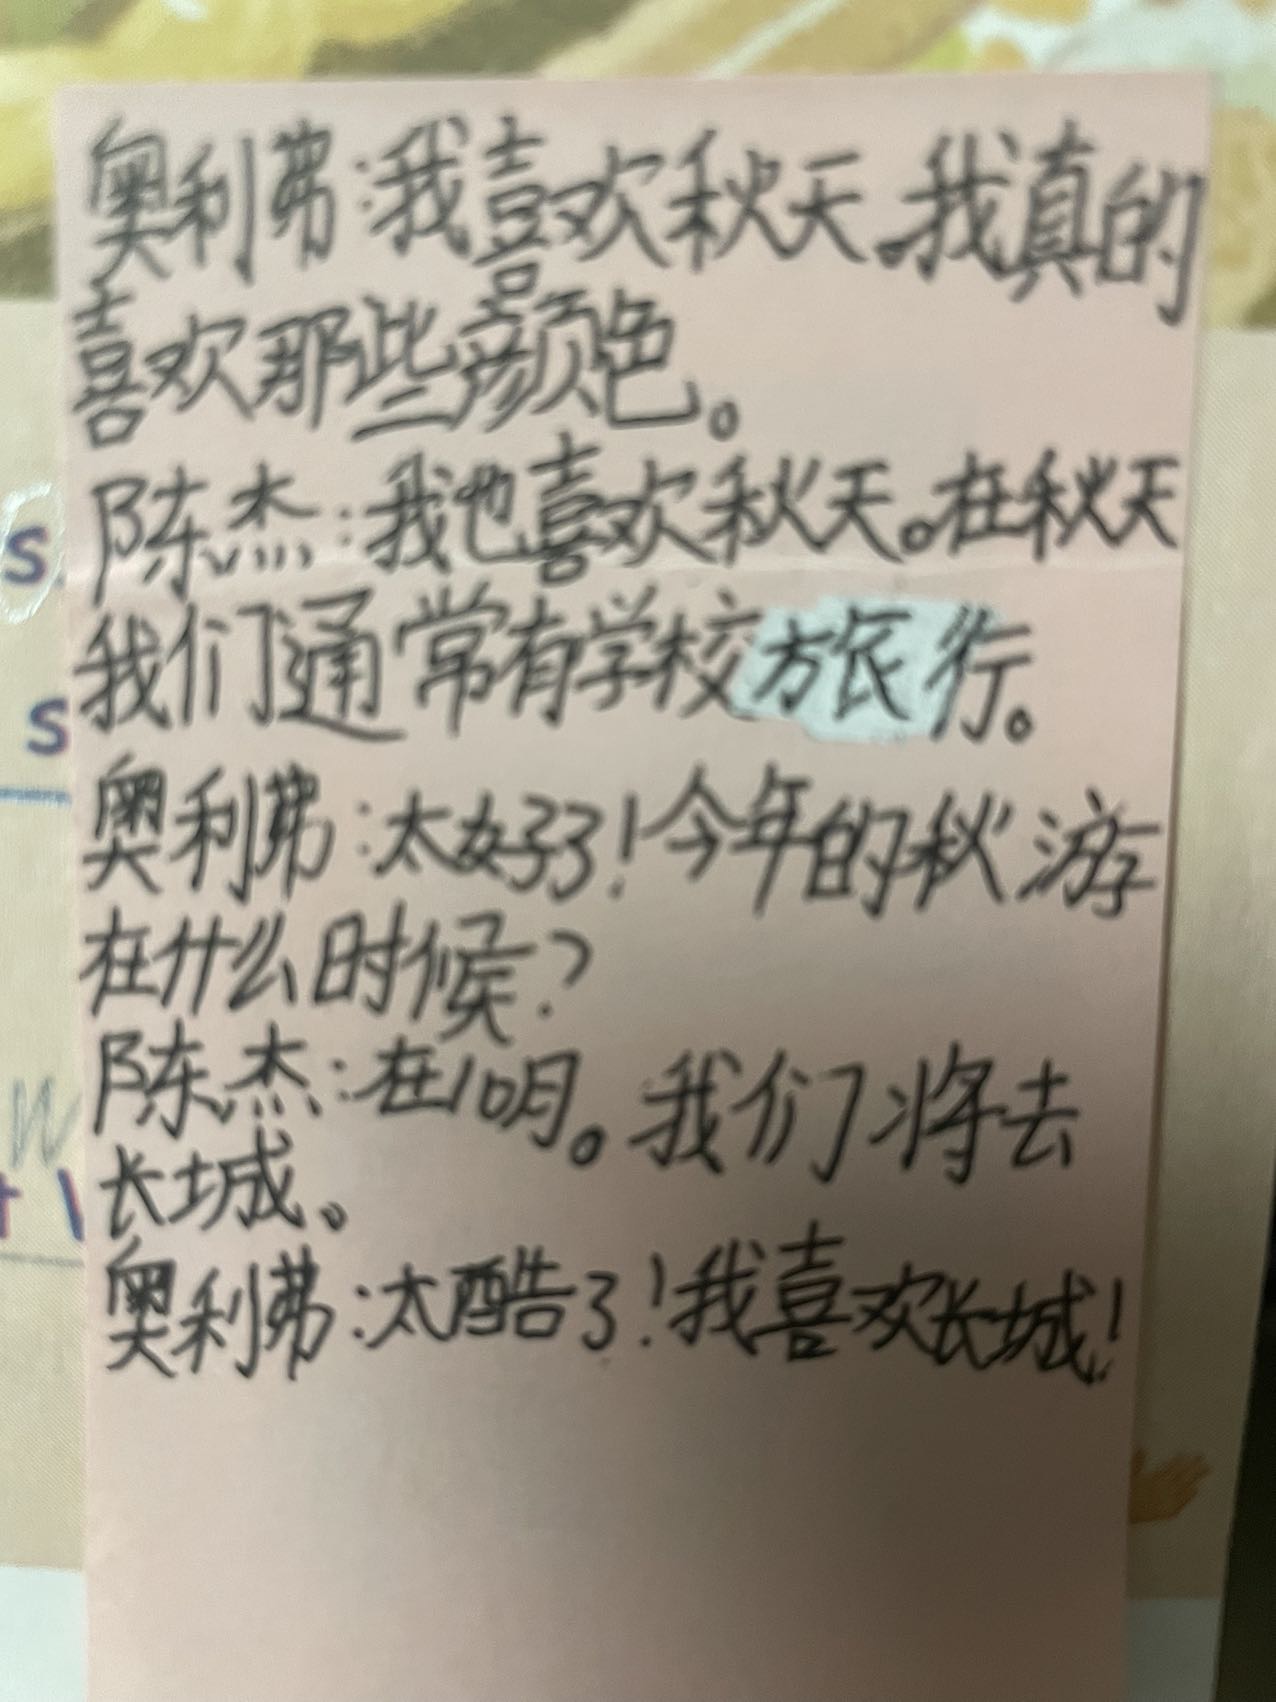 奥利弗:我喜欢秋天。我真的
喜欢那些颜色。
陈杰:我也喜欢秋天。在秋天
我们通常有学校旅行。
奥利弗:太好了!今年的秋游
在什么时候?
陈杰:在10月。我们将去
长城。
奥利弗:太酷了!我喜欢长城!
s
s
W